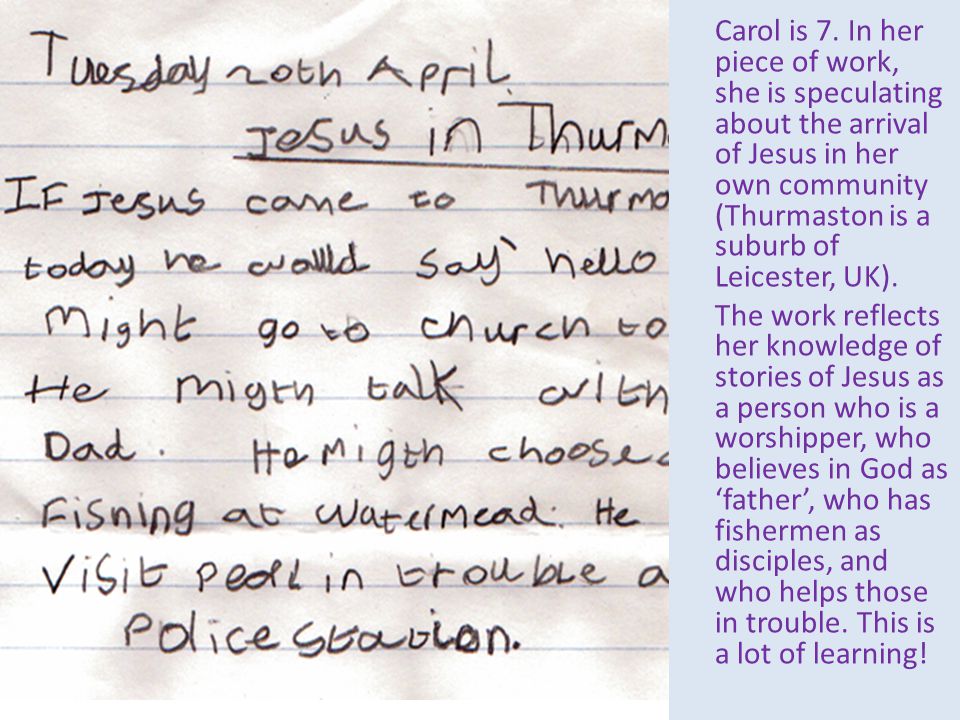 Tuesday 20th April.
Jesus in Thurma
IF Jesus came to Thurma
today he would say hello
Might go to church to
He migth talk with
Dad. He migth choose
Fishing at Watermead. He
Visit in trouble a
Police station.
Carol is 7. In her
piece of work,
she is speculating
about the arrival
of Jesus in her
own community
(Thurmaston is a
suburb of
Leicester, UK).
The work reflects
her knowledge of
stories of Jesus as
a person who is a
worshipper, who
believes in God as
‘father’, who has
fishermen as
disciples, and
who helps those
in trouble. This is
a lot of learning!